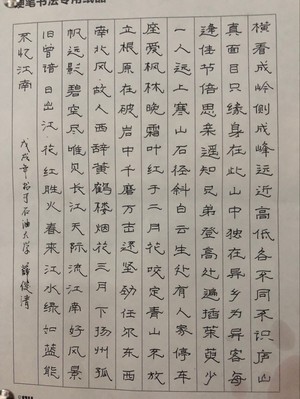 硬笔书法专用纸品
横看成岭侧成峰远近高低各不同不识庐山
真面目只缘身在此山中独在异乡为异客每
逢佳节倍思亲遥知兄弟登高处遍插茱萸少
一人远上寒山石径斜白云生处有人家停车
座爱枫林晚霜叶红于二月花咬定青山不放
立根原在破岩中千磨万击还坚劲任尔东西
南北风故人西辞黄鹤楼烟花三月下扬州孤
帆远影碧空尽唯见长江天际流江南好风景
旧曾谙日出江花红胜火春来江水绿如蓝能
不忆江南
戊戌年 石油大学 薛俊清